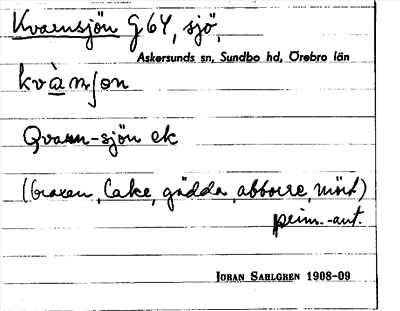 Kvarnsjön G 64, sjö,
Askersunds sn, Sundbo hd, Örebro län
kvàṇʃon
Qvarn-sjön ek
(braxen, lake, gädda, abborre, mört)
prim.-ant.
JÖRAN SAHLGREN 1908-09